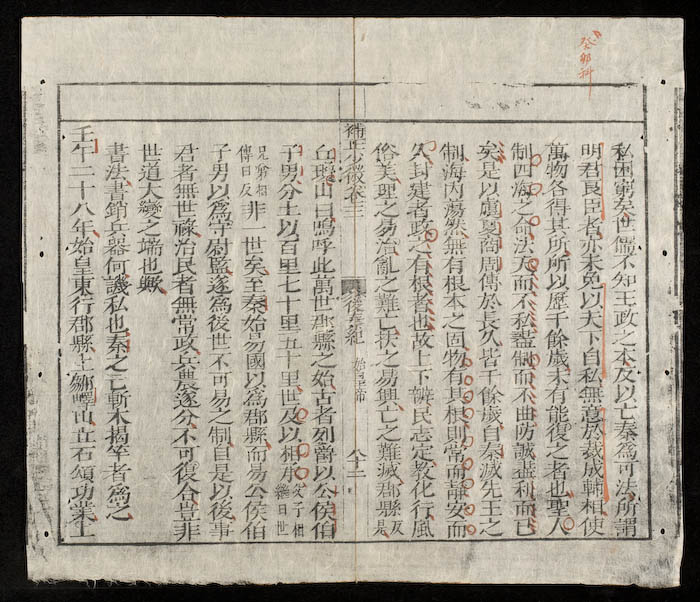 癸卯科
私困窮矣世儒不知王政之本反以亡秦爲可法所謂
明君良臣者亦未免以天下自私無意於裁成輔相使
萬物各得其所所以歷千餘歲未有能復之者也聖人
制四海之命法天而不私盡制而不曲防誠盡利而已
矣是以虞夏商周傳於長久皆千餘歲自秦滅先王之
制海內蕩然無有根本之固物有其根則常而靜安而
久封建者政之有根者也故上下辨民志定敎化行風
俗美理之易治亂之難亡扶之易興亡之難滅郡縣反是
補正少微卷三 後秦紀 始皇帝 八十二
丘瓊山曰嗚呼此萬世郡縣之始古者列爵以公侯伯
子男分土以百里七十里五十里世及以相承父子相繼曰世
兄弟相傳曰及非一世矣至秦始易國以爲郡縣而易公侯伯
子男以爲守尉監遂爲後世不可易之制自是以後事
君者無世祿治民者無常政兵農遂分不可復合豈非
世道大變之端也歟
書法書銷兵器何譏私也秦之亡斬木揭竿者爲之
壬午二十八年始皇東行郡縣上鄒嶧山立石頌功業上